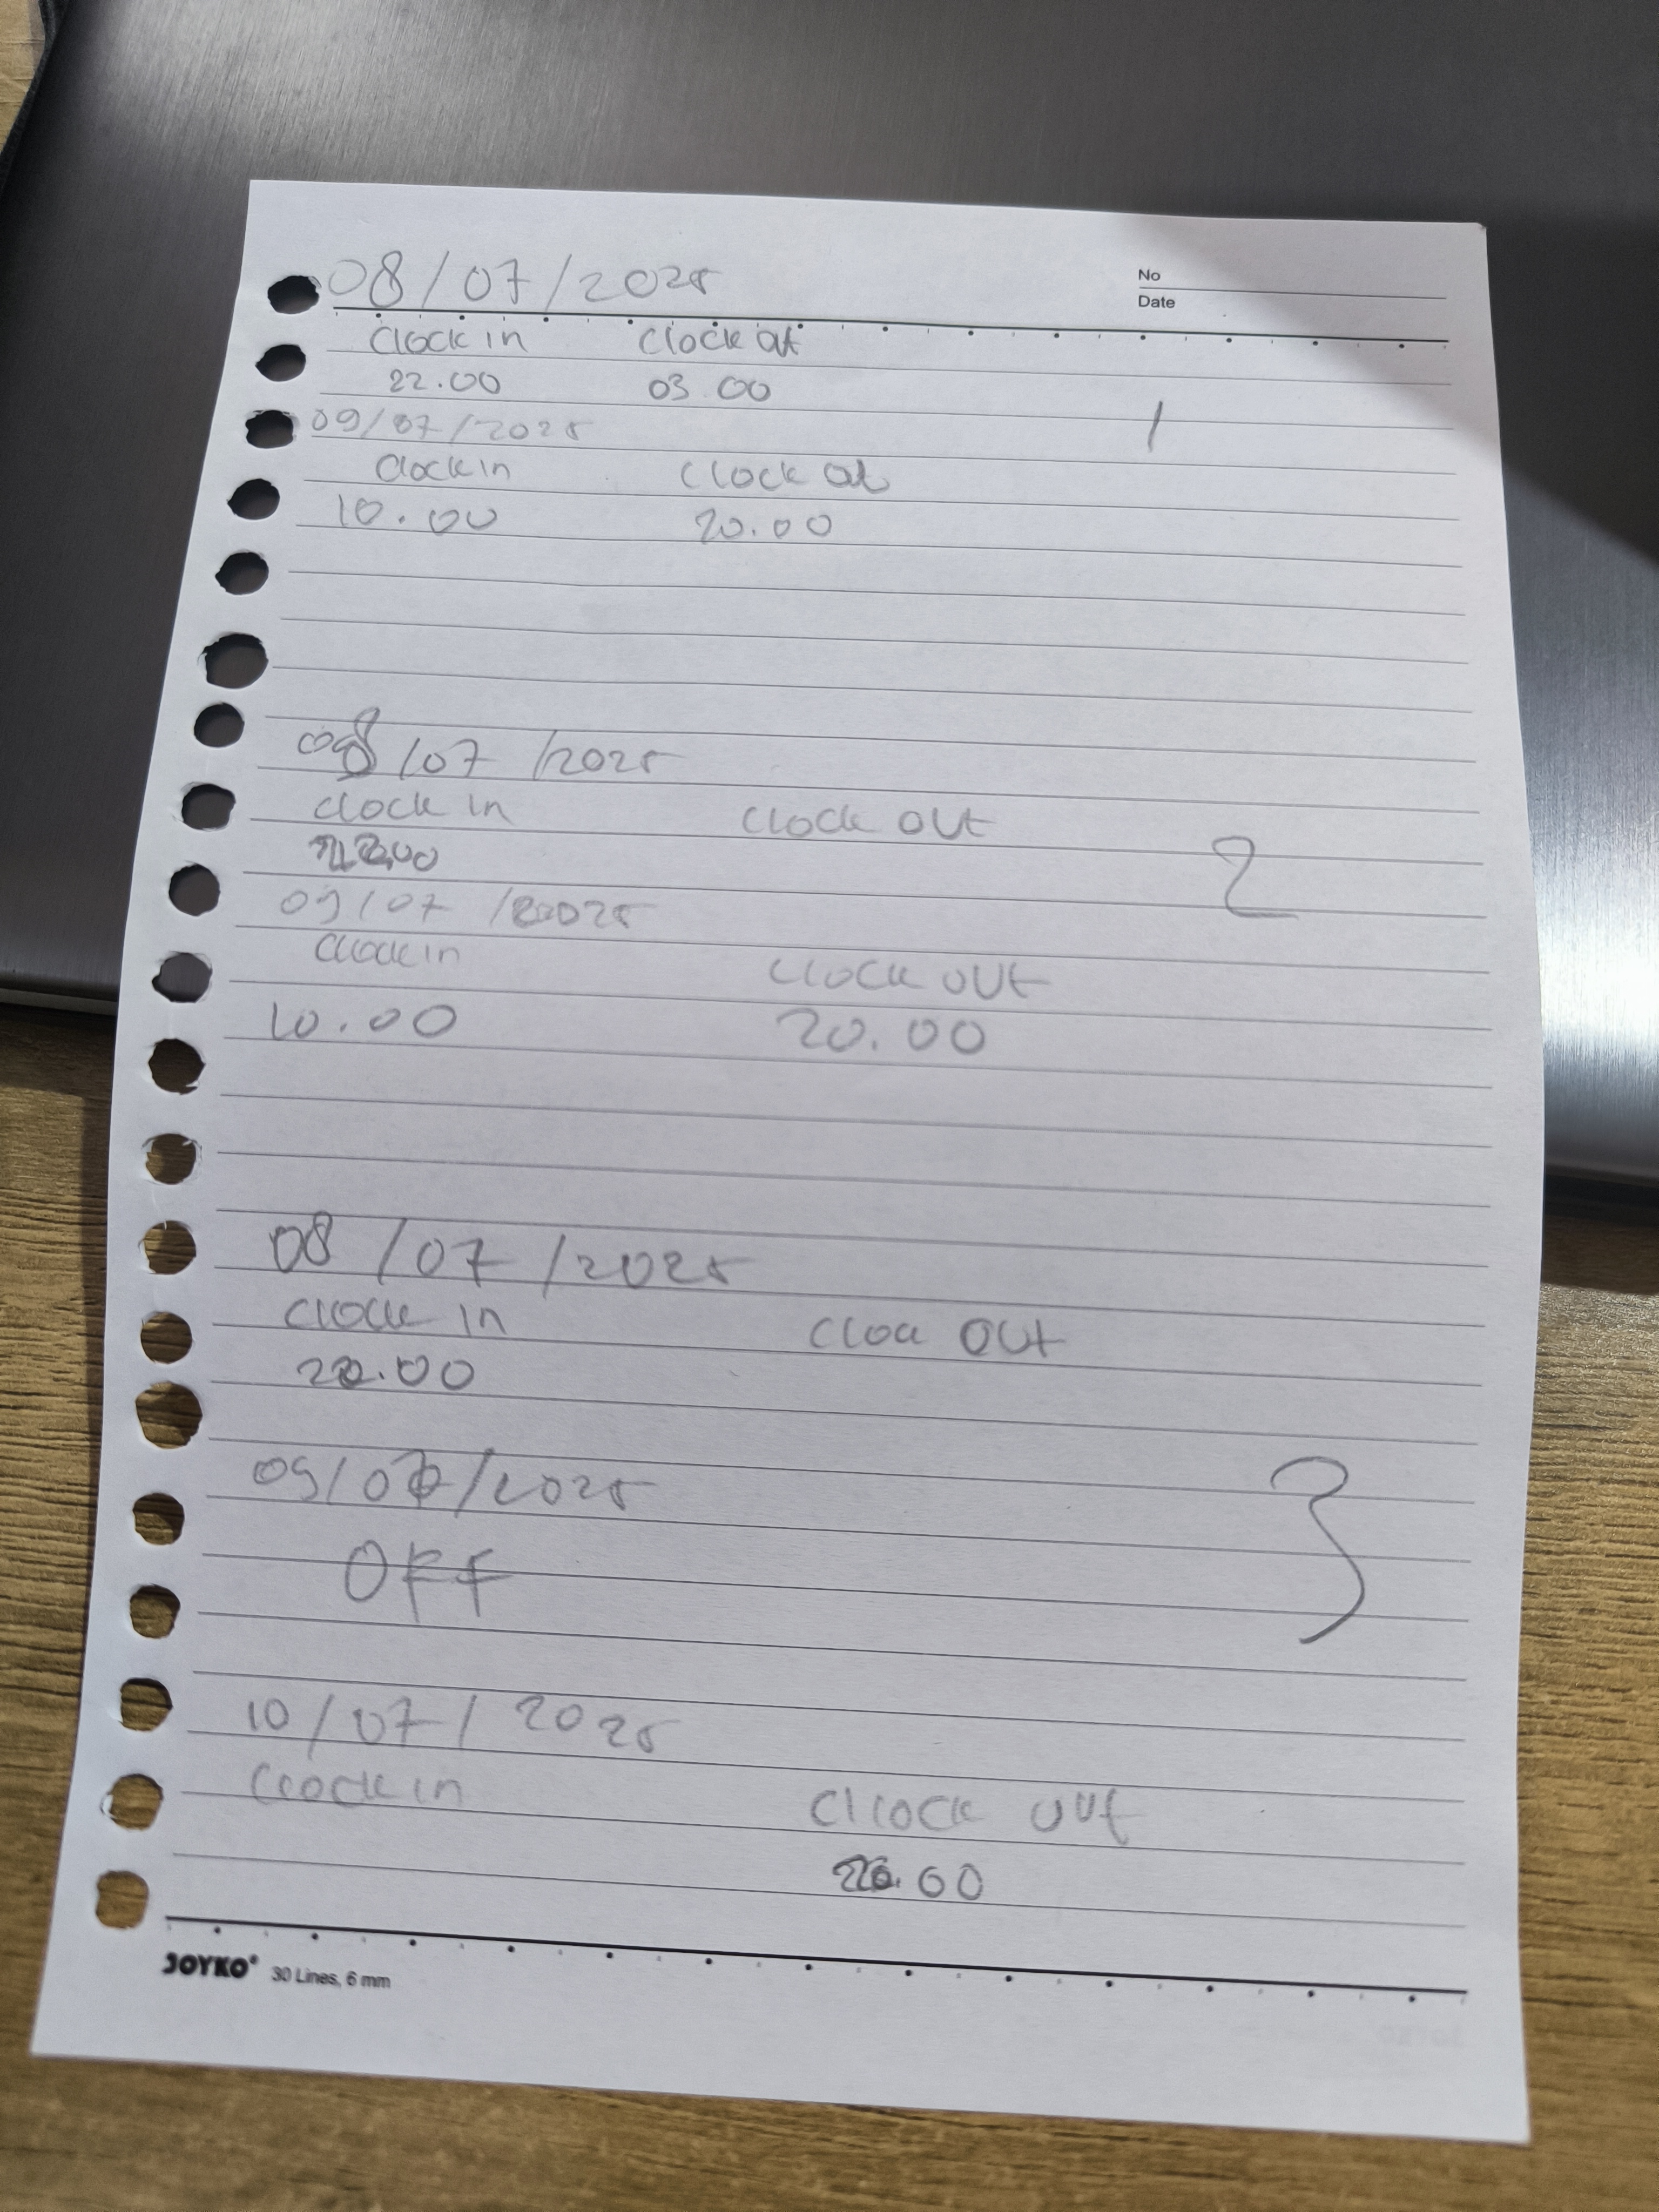 08/07/2025
No
Date
Clock in Clock out
22.00 03.00
09/07/2025
1
Clock in Clock out
10.00 20.00
08/07/2025
Clock in Clock out
2
09/07/2025
Clock in Clock out
10.00 20.00
08/07/2025
Clock in Clock out
22.00
09/07/2025
3
OFF
10/07/2025
Clock in Cllock out
JOYKO® 30 Lines, 6 mm